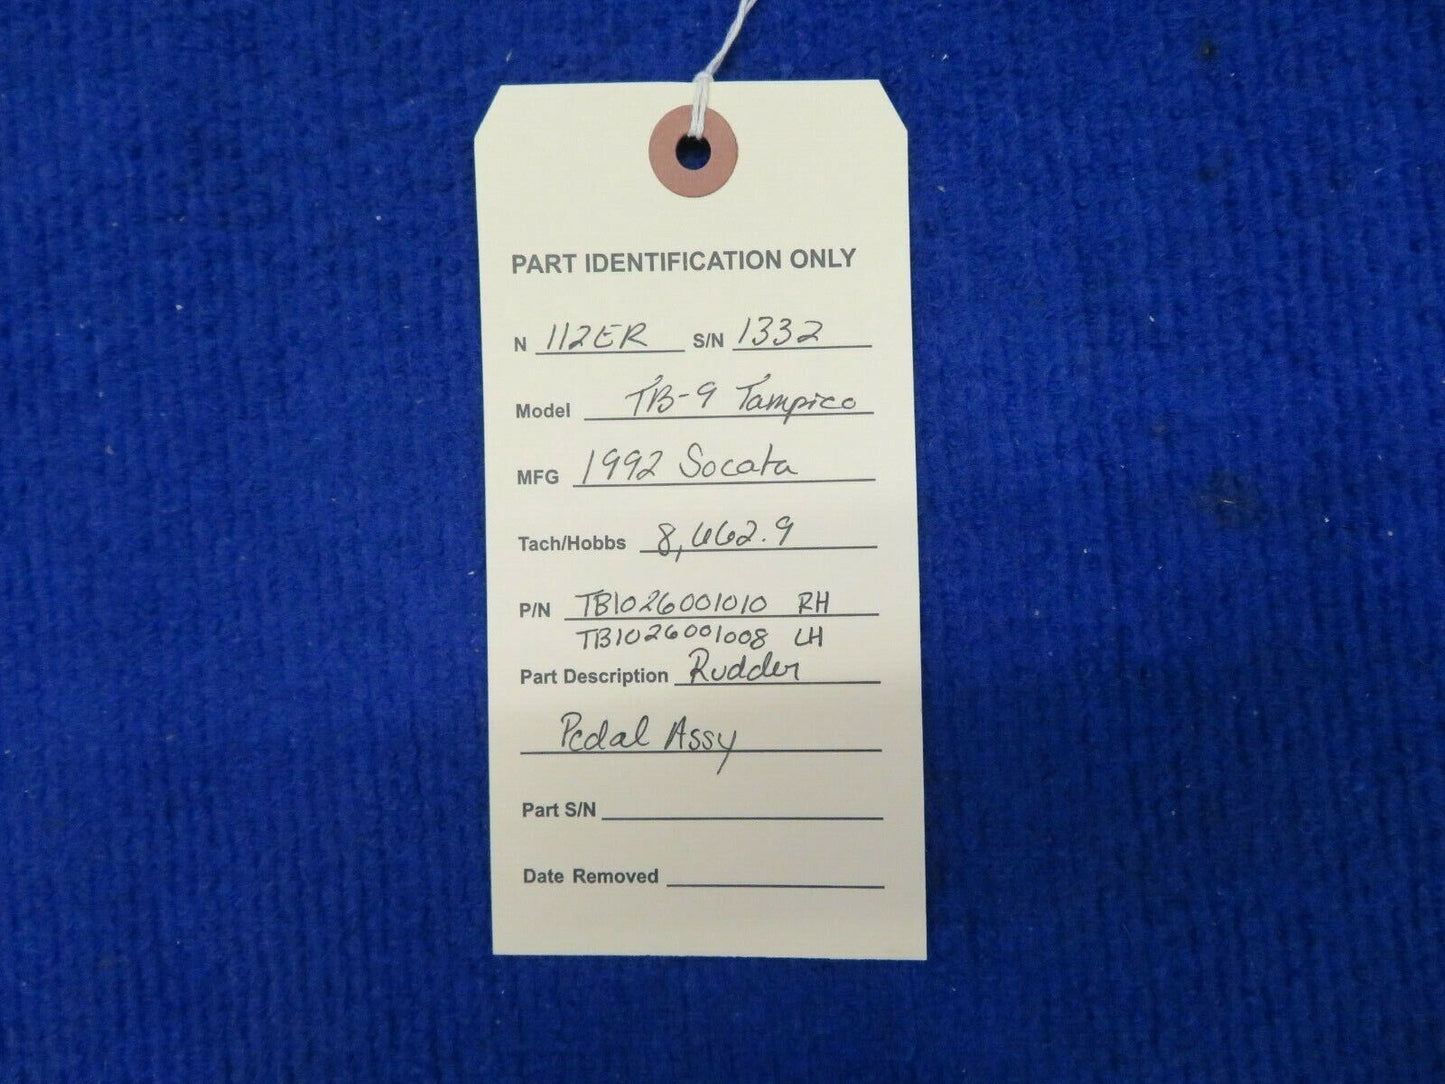 PART IDENTIFICATION ONLY
N 112ER S/N 1332
Model TB-9 Tampico
MFG 1992 Socata
Tach/Hobbs 8,662.9
P/N TB1026001010 RH
TB1026001008 LH
Part Description Rudder
Pedal Assy
Part S/N
Date Removed